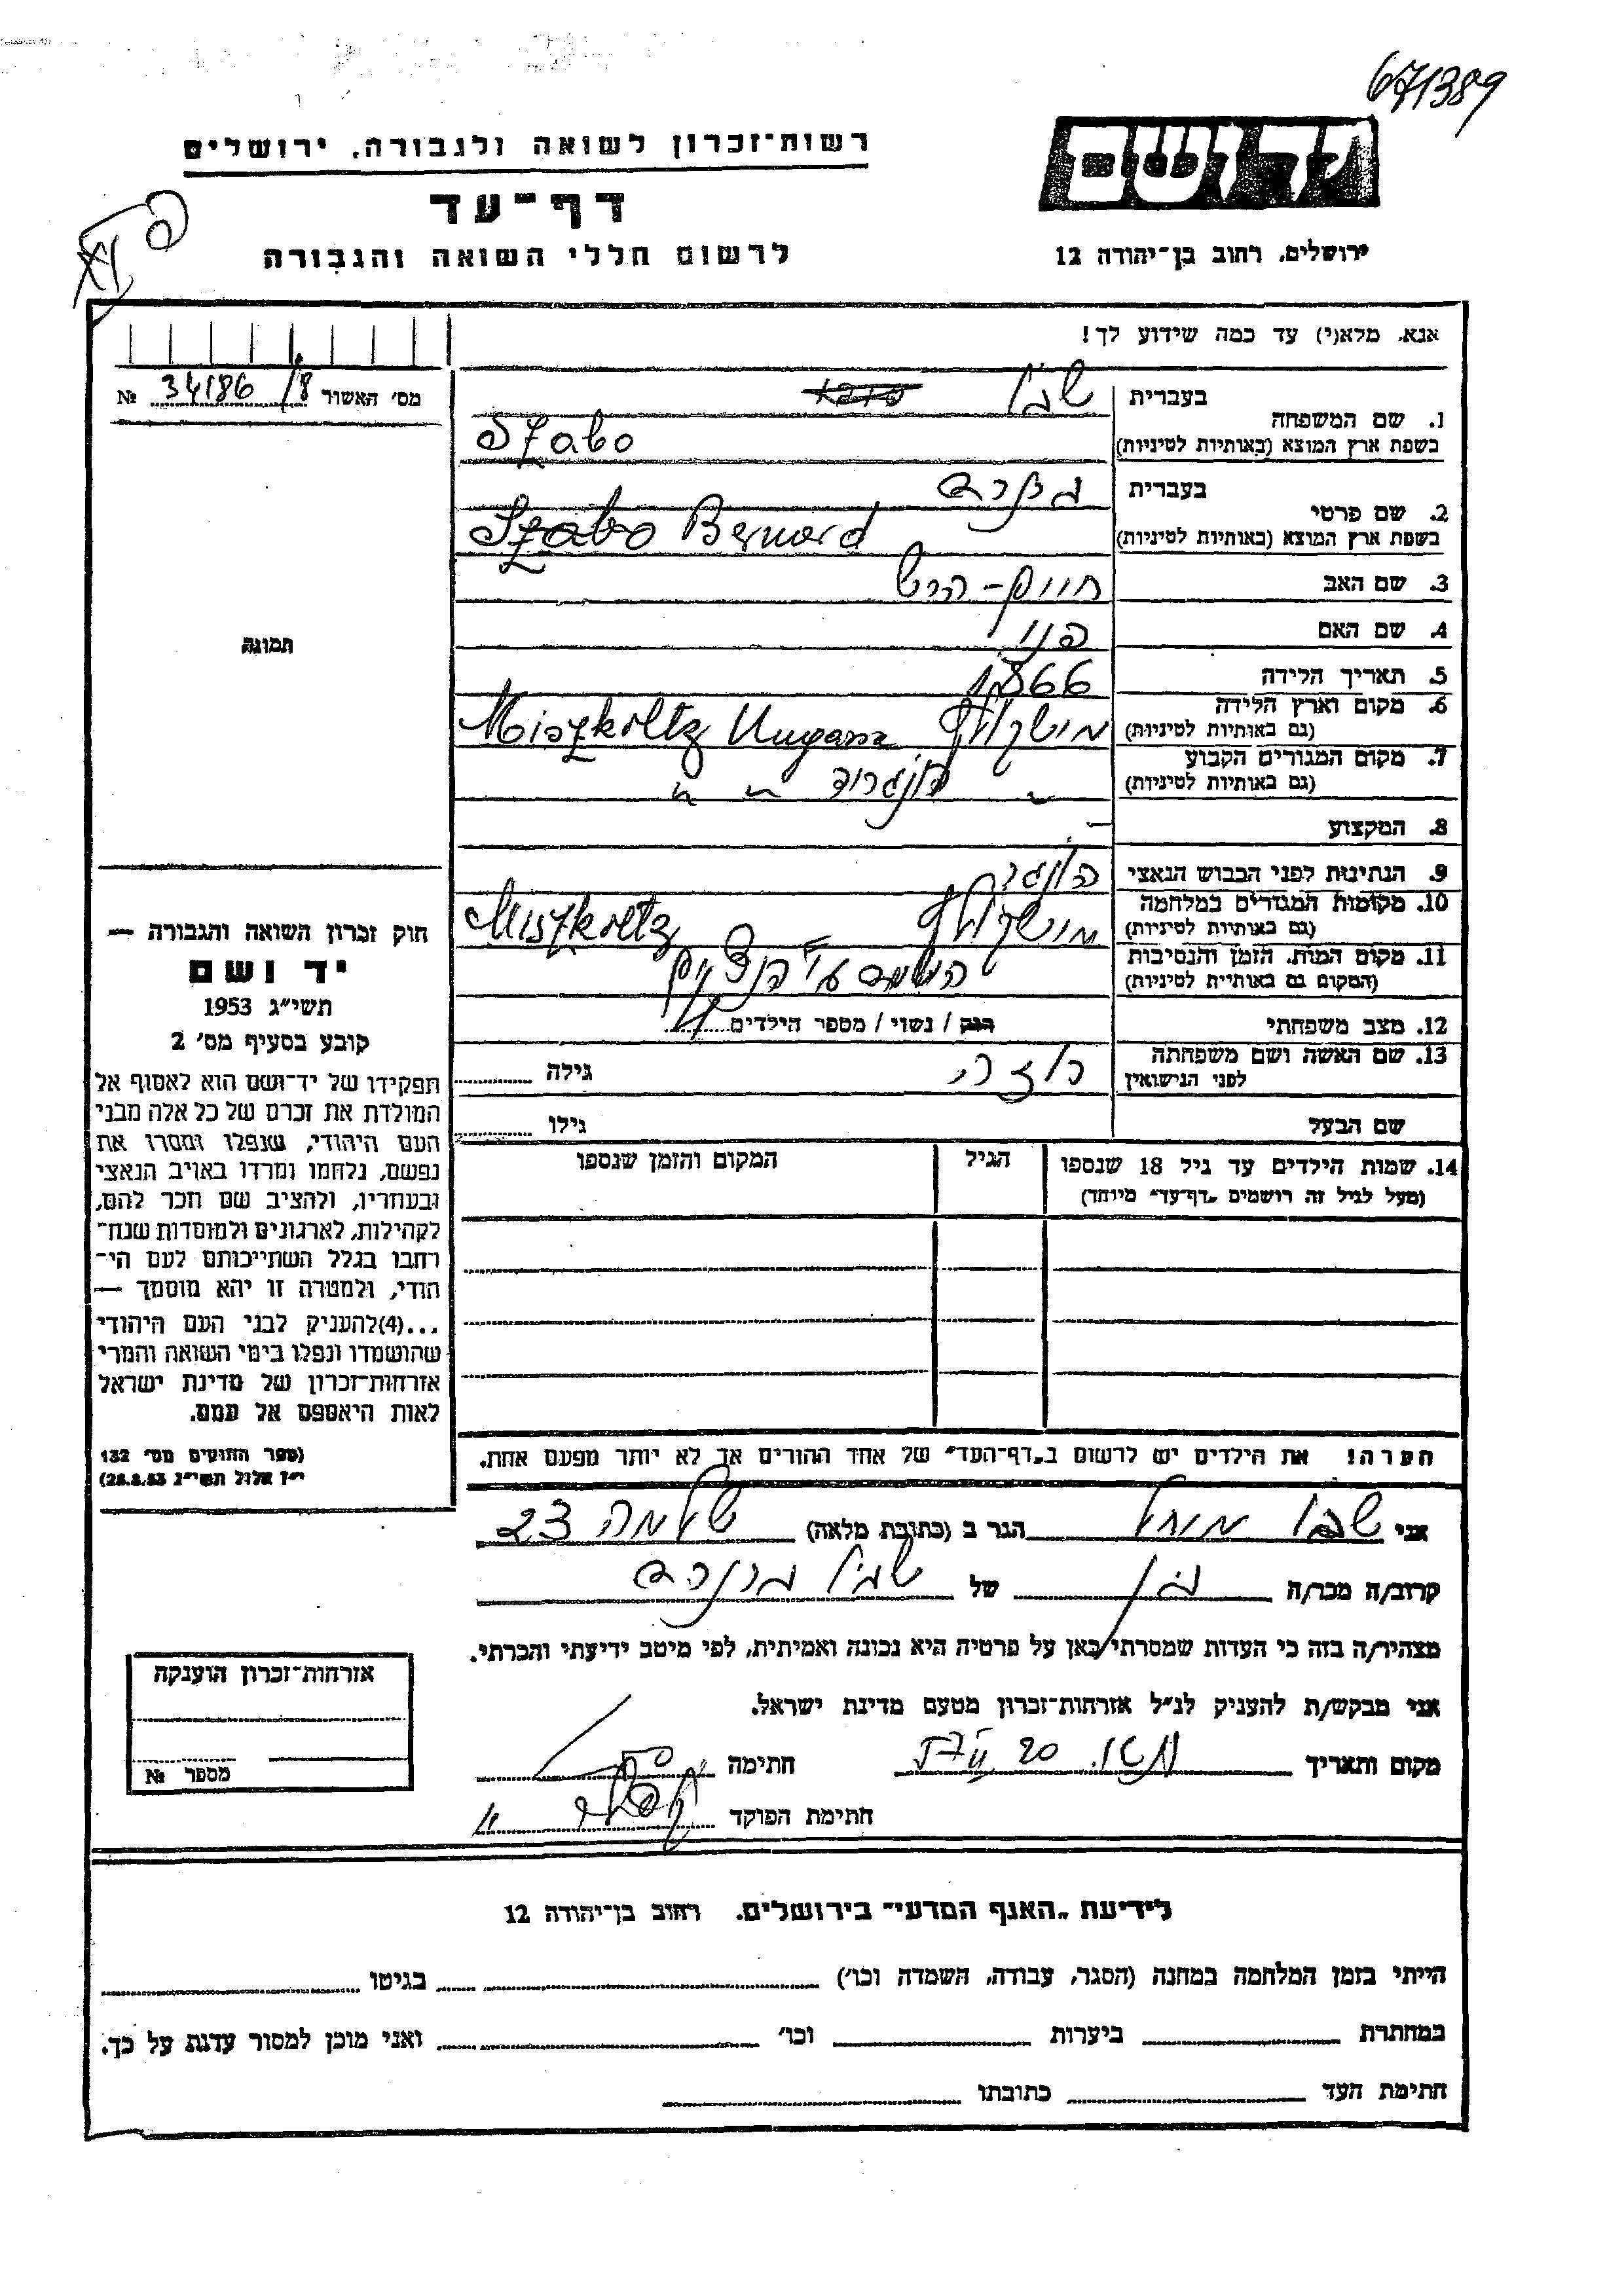 671389
רשות־זכרון לשואה ולגבורה, ירושלים
יד ושם
דף־עד
לרשום חללי השואה והגבורה
ירושלים, רחוב בן־יהודה 12
אנא, מלא(י) עד כמה שידוע לך!
מס׳ האשור 34186/8 №
1. שם המשפחה
בעברית שבו
בשפת ארץ המוצא (באותיות לטיניות) Szabo
2. שם פרטי
בעברית ברנרד
בשפת ארץ המוצא (באותיות לטיניות) Szabo Bernard
3. שם האב חיים - הרש
4. שם האם פני
5. תאריך הלידה 1866
6. מקום וארץ הלידה (גם באותיות לטיניות) מישקולץ Miszkoltz
7. מקום המגורים הקבוע (גם באותיות לטיניות)
8. המקצוע –
9. הנתינות לפני הכבוש הנאצי הונגרי
10. מקומות המגורים במלחמה (גם באותיות לטיניות) מישקולץ Miszkoltz
11. מקום המות, הזמן והנסיבות (המקום גם באותיות לטיניות) הושמד ע״י הנאצים
12. מצב משפחתי רווק / נשוי / מספר הילדים 4
13. שם האשה ושם משפחתה לפני הנישואין
גילה
שם הבעל
גילו
14. שמות הילדים עד גיל 18 שנספו
(מעל לגיל זה רושמים „דף־עד״ מיוחד)
הגיל
המקום והזמן שנספו
תמונה
חוק זכרון השואה והגבורה —
יד ושם
תשי״ג 1953
קובע בסעיף מס׳ 2
תפקידו של יד־ושם הוא לאסוף אל
המולדת את זכרם של כל אלה מבני
העם היהודי, שנפלו ומסרו את
נפשם, נלחמו ומרדו באויב הנאצי
ובעוזריו, ולהציב שם וזכר להם,
לקהילות, לארגונים ולמוסדות שנח־
רבו בגלל השתייכותם לעם הי־
הודי, ולמטרה זו יהא מוסמך —
...(4)להעניק לבני העם היהודי
שהושמדו ונפלו בימי השואה והמרי
אזרחות־זכרון של מדינת ישראל
לאות היאספם אל עמם.
(ספר החוקים מס׳ 132
י״ז אלול תשי״ג 28.8.53)
הערה! את הילדים יש לרשום ב„דף־העד״ של אחד ההורים אך לא יותר מפעם אחת.
אני שבו הגר ב (כתובת מלאה) שלמה 23
קרוב/ה מכר/ה בן של שבו ברנרד
מצהיר/ה בזה כי העדות שמסרתי כאן על פרטיה היא נכונה ואמיתית, לפי מיטב ידיעתי והכרתי.
אני מבקש/ת להעניק לנ״ל אזרחות־זכרון מטעם מדינת ישראל.
מקום ותאריך חתימה
חתימת הפוקד
אזרחות־זכרון הוענקה
מספר №
לידיעת „האגף המדעי״ בירושלים, רחוב בן־יהודה 12
הייתי בזמן המלחמה במחנה (הסגר, עבודה, השמדה וכו׳) בגיטו
במחתרת ביערות וכו׳ ואני מוכן למסור עדות על כך.
חתימת העד כתובתו